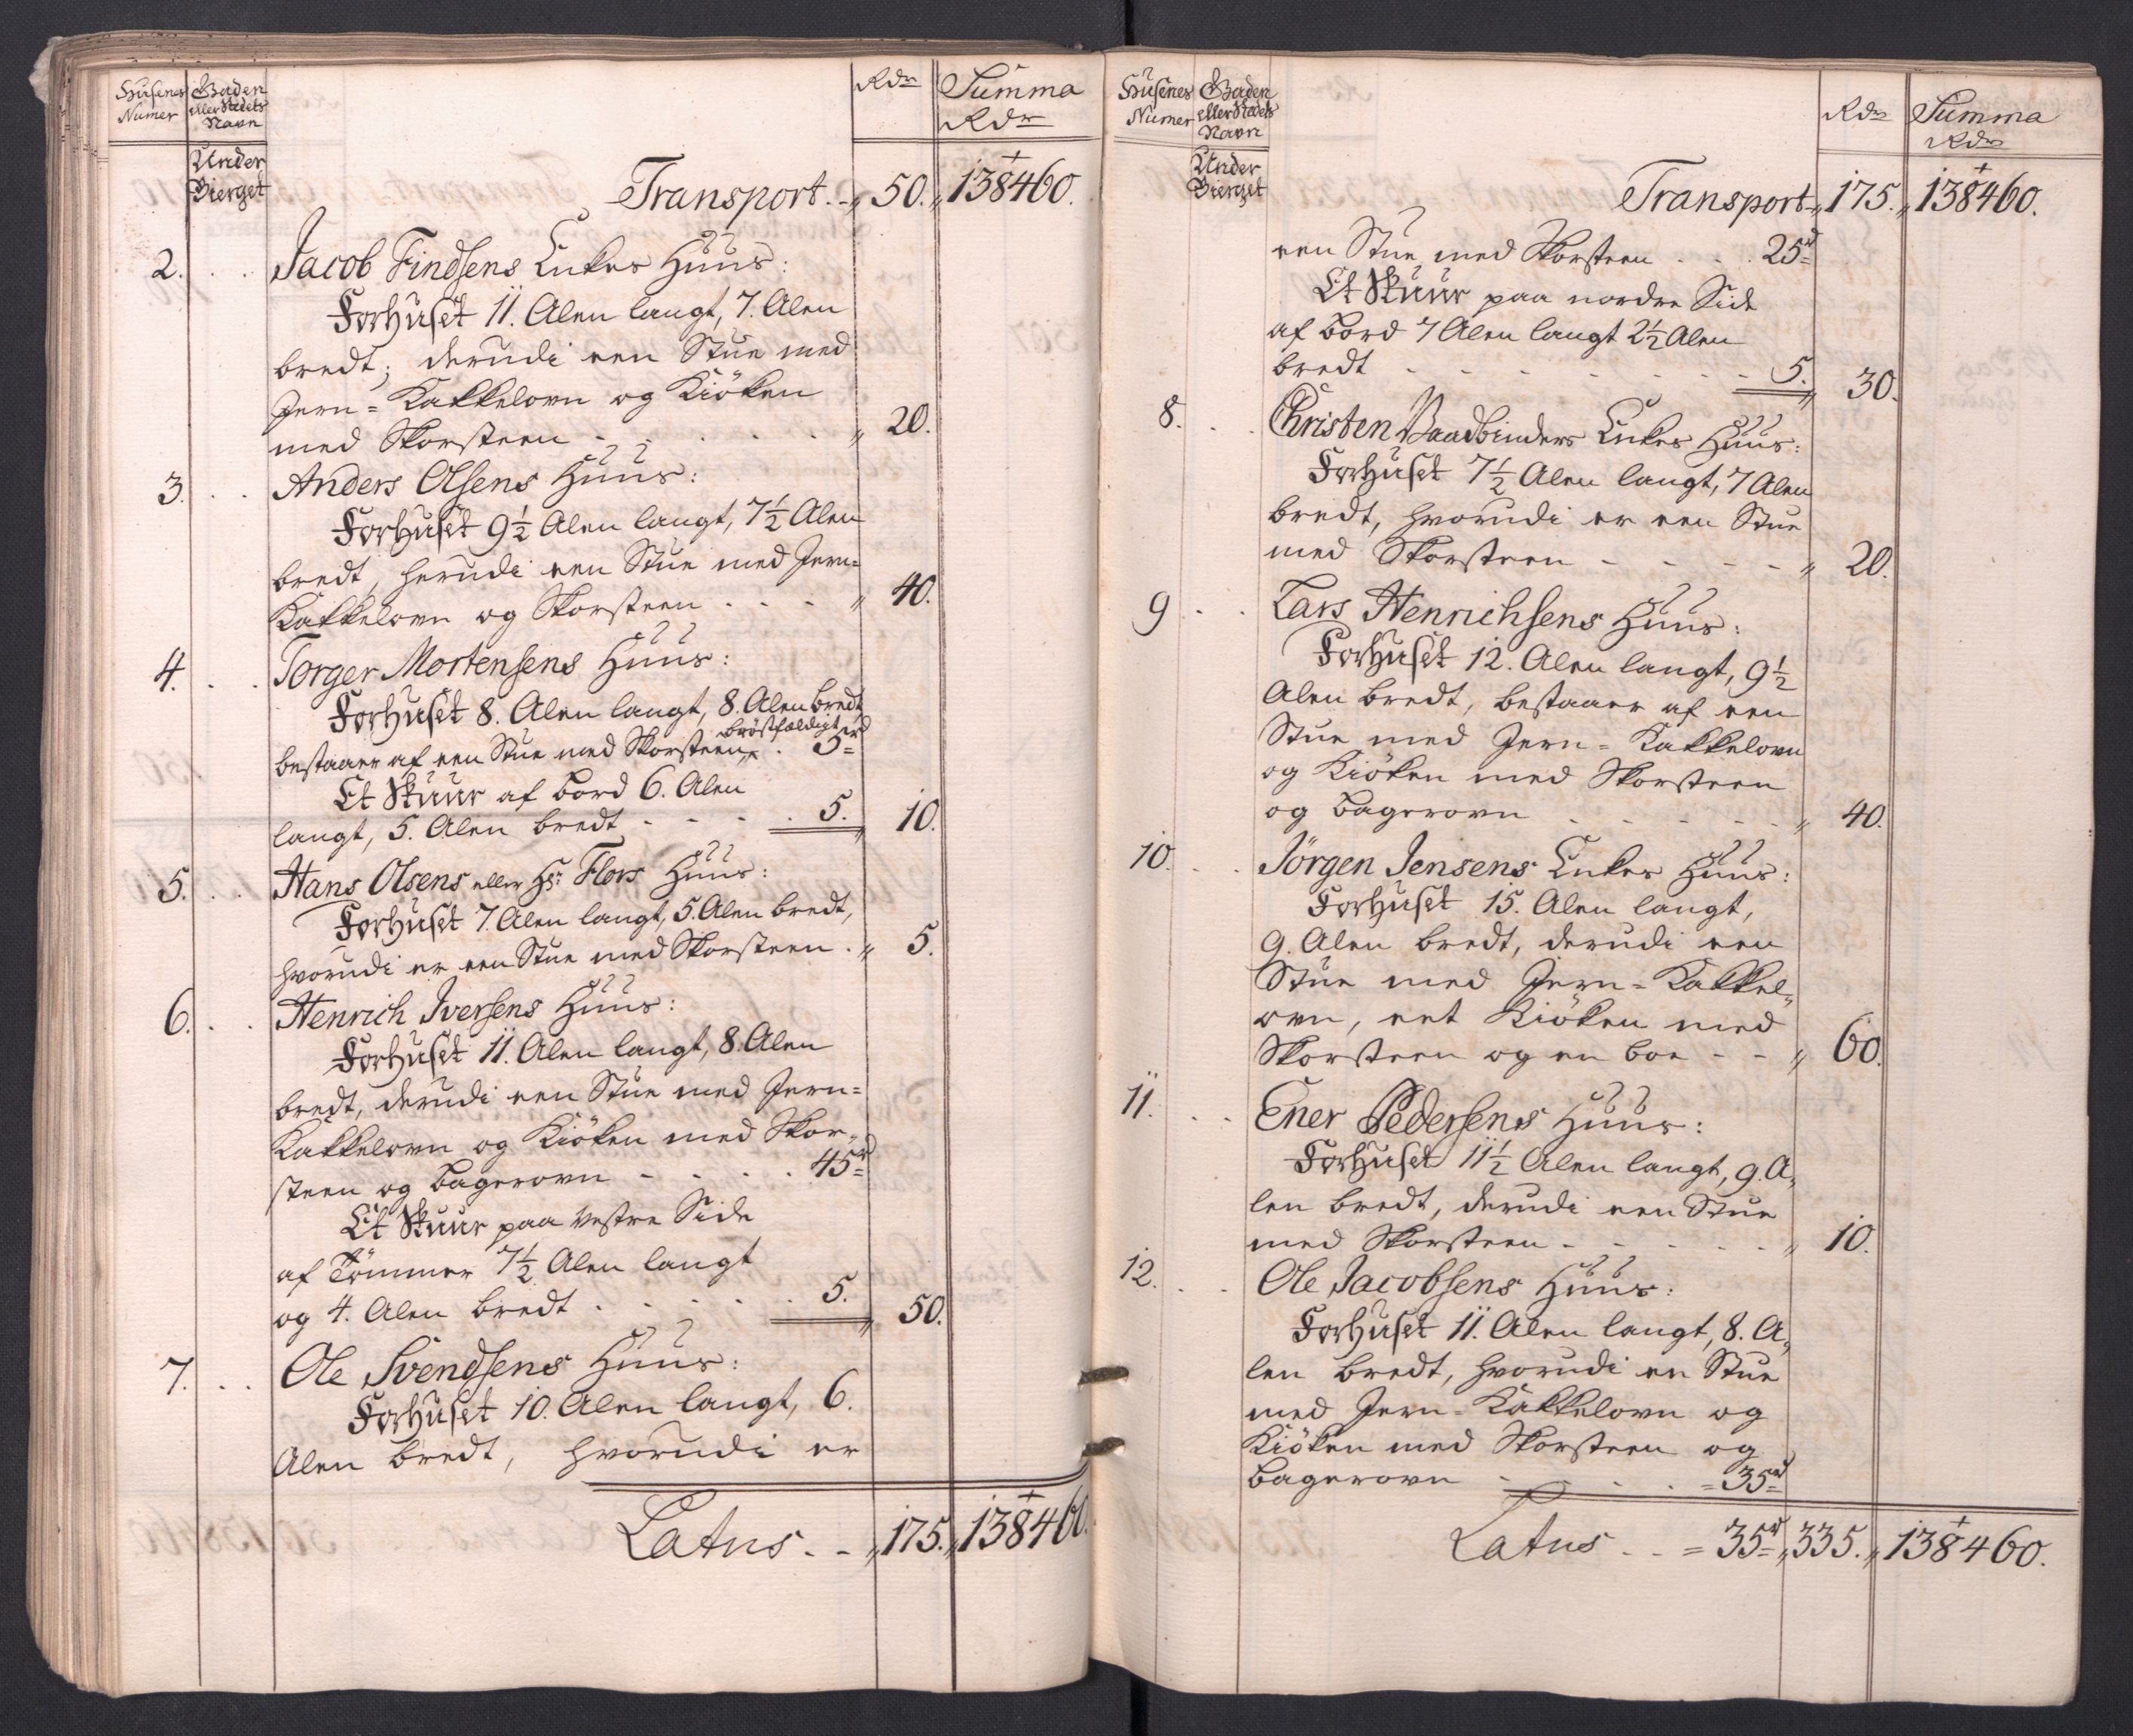 Husenes Numer
Gaden eller Stædets Navn
Rdr
Summa Rdr
Under Bierget
Transport. - „ 50. „ 138460.
2. . . Jacob Findsens Enkes Huus:
Forhuset 11. Alen langt, 7. Alen
bredt; derudi een Stue med
Jern-Kakkelovn og Kiöken
med Skorsteen - - - - „ 20.
3. . . Anders Olsens Huus:
Forhuset 9½ Alen langt, 7½ Alen
bredt, herudi een Stue med Jern-
Kakkelovn og Skorsteen . . . „ 40.
4. . . Torger Mortensens Huus:
Forhuset 8. Alen langt, 8. Alen bredt
bröstfældigt
bestaaer af een Stue med Skorsteen, . 5rd
Et Skuur af bord 6. Alen
langt, 5. Alen bredt - - - . 5. „ 10.
5. . . Hans Olsens eller Hr: Flors Huus:
Forhuset 7 Alen langt, 5. Alen bredt,
hvorudi er een Stue med Skorsteen . „ 5.
6. . . Henrich Iversens Huus:
Forhuset 11. Alen langt, 8. Alen
bredt, derudi een Stue med Jern-
Kakkelovn og Kiöken med Skor-
steen og bagerovn - - - . 45rd
Et Skuur paa vestre Side
af Tömmer 7½ Alen langt
og 4. Alen bredt . . . . . 5. „ 50.
7. . . Ole Svendsens Huus:
Forhuset 10. Alen langt, 6.
Alen bredt, hvorudi er
Latus. - - „ 175. „ 138460.
Husenes Numer
Gaden eller Stædets Navn
Rdr
Summa Rdr
Under Bierget
Transport - „ 175. „ 138460.
een Stue med Skorsteen . . . 25rd
Et Skuur paa nordre Side
af bord 7 Alen langt 2½ Alen
bredt - - - - - - - 5. „ 30.
8. . . Christen Vaadbinders Enkes Huus:
Forhuset 7½ Alen langt, 7 Alen
bredt, hvorudi er een Stue
med Skorsteen - - - - „ 20.
9 . . Lars Henrichsens Huus:
Forhuset 12. Alen langt, 9½
Alen bredt, bestaaer af een
Stue med Jern-Kakkelovn
og Kiöken med Skorsteen
og bagerovn - - - - - „ 40.
10. . . Jörgen Jensens Enkes Huus:
Forhuset 15. Alen langt,
9. Alen bredt, derudi een
Stue med Jern-Kakkel-
ovn, eet Kiöken med
Skorsteen og en boe - - „ 60.
11. . . Ener Pedersens Huus:
Forhuset 11½ Alen langt, 9. A-
len bredt, derudi een Stue
med Skorsteen - - - - - „ 10.
12. . . Ole Jacobsens Huus:
Forhuset 11. Alen langt, 8. A-
len bredt, hvorudi en Stue
med Jern-Kakkelovn og
Kiöken med Skorsteen og
bagerovn - - - - = 35rd
Latus - - = 35rd „ 335. „ 138460.